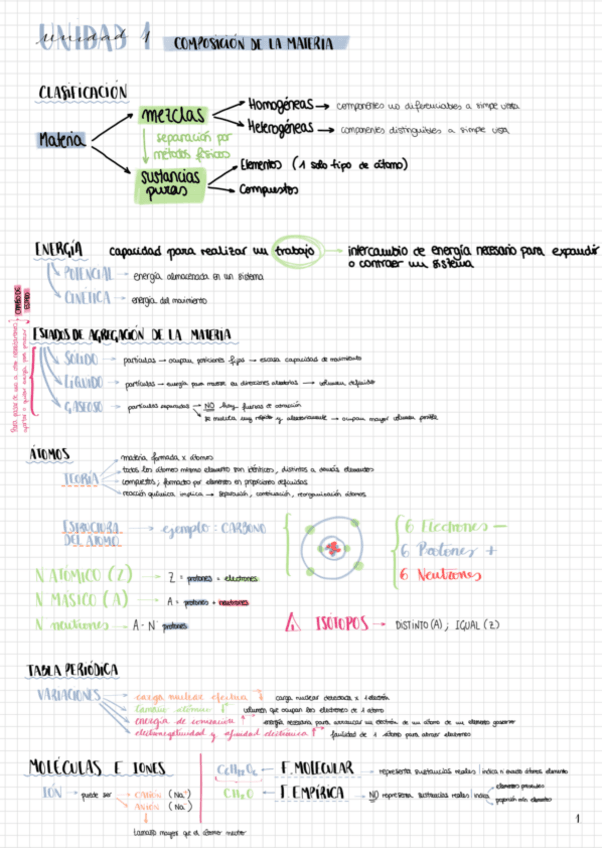 UNIDAD 1 COMPOSICIÓN DE LA MATERIA
unidad 1
CLASIFICACIÓN
Materia
mezclas
Homogéneas → componentes no diferenciables a simple vista
Heterogéneas → componentes distinguibles a simple vista
separación por
métodos físicos
sustancias
puras
Elementos (1 solo tipo de átomo)
Compuestos
ENERGÍA capacidad para realizar un trabajo → intercambio de energía necesario para expandir
o contraer un sistema
POTENCIAL → energía almacenada en un sistema
CINÉTICA → energía del movimiento
CAMBIO DE
ESTADO
ESTADOS DE AGREGACIÓN DE LA MATERIA
SÓLIDO → partículas → ocupan posiciones fijas → escasa capacidad de movimiento
LÍQUIDO → partículas → energía para moverse en direcciones aleatorias → volumen definido
GASEOSO → partículas separadas → NO hay fuerzas de cohesión
se mueven muy rápido y aleatoriamente → ocupan mayor volumen posible
ÁTOMOS
TEORÍA
materia formada x átomos
todos los átomos mismo elemento son idénticos, distintos a demás elementos
compuestos; formados por elementos en proporciones definidas
reacción química implica → separación, combinación, reorganización átomos
ESTRUCTURA
DEL ÁTOMO
→ ejemplo: CARBONO
6 Electrones −
6 Protones +
6 Neutrones
N ATOMICO (Z) → Z = protones = electrones
N MASICO (A) → A = protones + neutrones
N neutrones → A - Nº protones
ISÓTOPOS → DISTINTO (A); IGUAL (Z)
TABLA PERIÓDICA
VARIACIONES
carga nuclear efectiva → carga nuclear detectada x 1 electrón
tamaño atómico ↑ → volumen que ocupan los electrones de 1 átomo
energía de ionización ↑ → energía necesaria para arrancar un electrón de un átomo de un elemento gaseoso
electronegatividad y afinidad electrónica ↑ → facilidad de 1 átomo para atraer electrones
MOLÉCULAS E IONES
IÓN → puede ser
CATIÓN (Na⁺)
ANIÓN (Na⁻)
tamaño mayor que el átomo neutro
C₆H₁₂O₆ ← F. MOLECULAR → representa sustancias reales / indica nº exacto átomos elemento
CH₂O ← F. EMPÍRICA → NO representa sustancias reales / indica
elementos presentes
proporción mín elementos
1